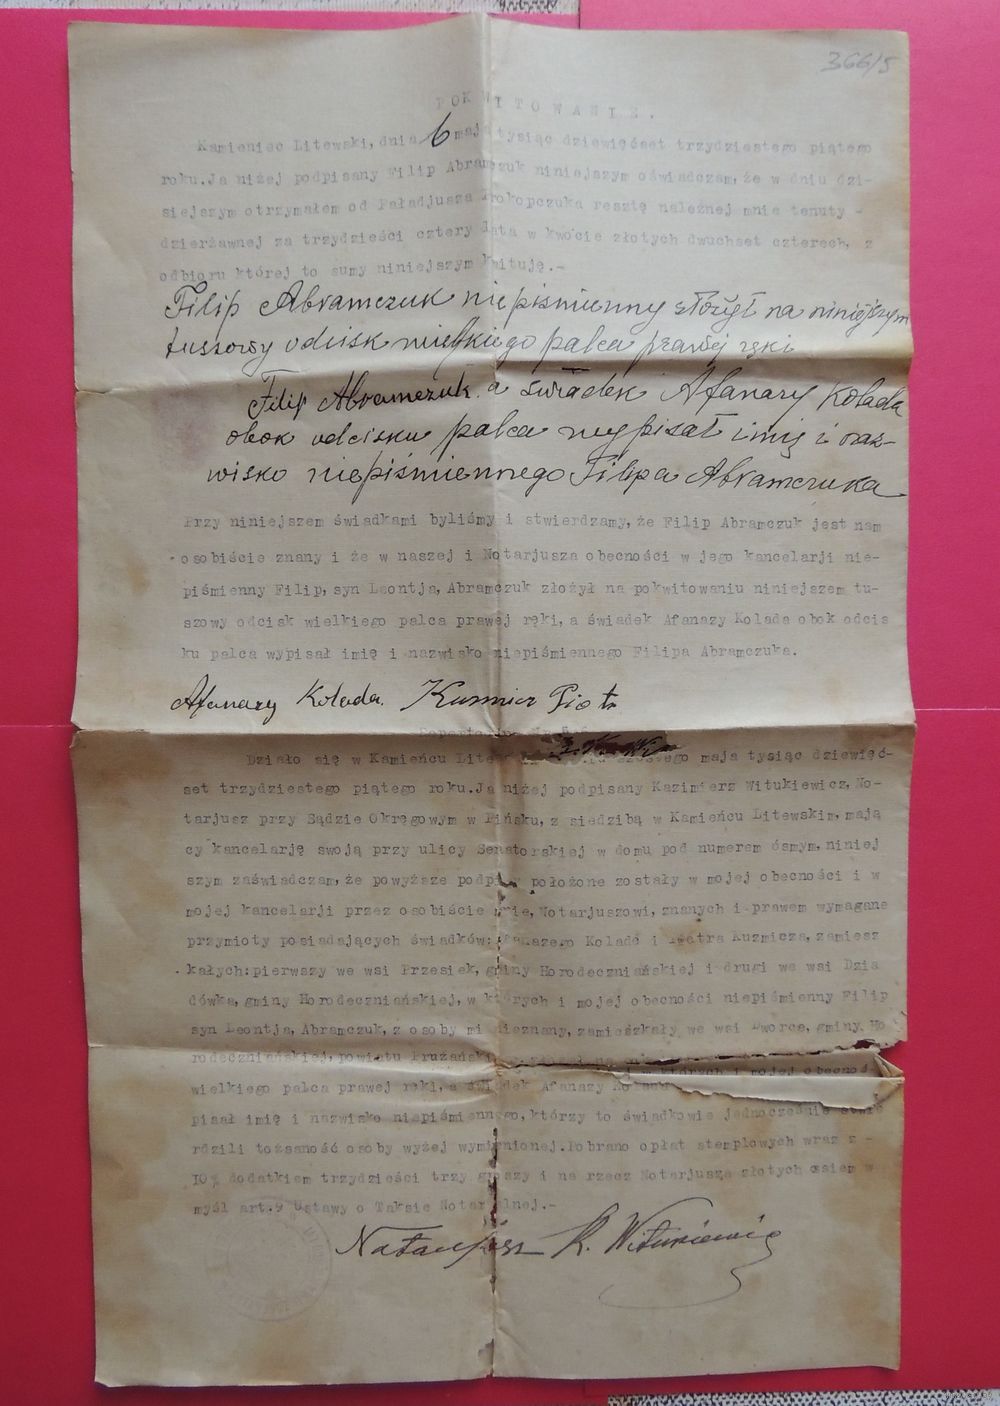 366/5
POKWITOWANIE.
Kamieniec Litewski, dnia 6 maja tysiąc dziewięćset trzydziestego piątego
roku.Ja niżej podpisany Filip Abramczuk niniejszym oświadczam, że w dniu dzi-
siejszym otrzymałem od Paładjusza Prokopczuka resztę należnej mnie tenuty -
dzierżawnej za trzydzieści cztery lata w kwocie złotych dwuchset czterech, z
odbioru której to sumy niniejszym kwituję.-
Filip Abramczuk niepiśmienny złożył na niniejszym
tuszowy odcisk wielkiego palca prawej ręki
Filip Abramczuk. a świadek Afanazy Kolada
obok odcisku palca wypisał imię i naz-
wisko niepiśmiennego Filipa Abramczuka
Przy niniejszem świadkami byliśmy i stwierdzamy, że Filip Abramczuk jest nam
osobiście znany i że w naszej i Notarjusza obecności w jego kancelarji nie-
piśmienny Filip, syn Leontja, Abramczuk złożył na pokwitowaniu niniejszem tu-
szowy odcisk wielkiego palca prawej ręki, a świadek Afanazy Kolada obok odcis
ku palca wypisał imię i nazwisko niepiśmiennego Filipa Abramczuka.
Afanazy Kolada. Kuzmicz Piotr
Działo się w Kamieńcu maja tysiąc dziewięć-
set trzydziestego piątego roku.Ja niżej podpisany Kazimierz Witukiewicz, No-
tarjusz przy Sądzie Okręgowym w Pińsku, z siedzibą w Kamieńcu Litewskim, mają
cy kancelarję swoją przy ulicy Senatorskiej w domu pod numerem ósmym, niniej
szym zaświadczam, że powyższe podpisy położone zostały w mojej obecności i w
mojej kancelarji przez osobiście mnie, Notarjuszowi, znanych i prawem wymagane
przymioty posiadających świadków: Afanazego Koladę i Piotra Kuzmicza, zamiesz
kałych:pierwszy we wsi Przesiek, gminy Horodeczniańskiej i drugi we wsi Dzia
dówka, gminy Horodeczniańskiej, w których i mojej obecności niepiśmienny Filip
syn Leontja, Abramczuk, z osoby mi nieznany, zamieszkały we wsi Dworce, gminy Ho
rodeczniańskiej, powiatu Prużański w których i mojej obecnoś
wielkiego palca prawej ręki, a świadek Afanazy
pisał imię i nazwisko niepiśmiennego, którzy to świadkowie jednocześnie stwie
rdzili tożsamość osoby wyżej wymienionej.Pobrano opłat stemplowych wraz z -
10% dodatkiem trzydzieści trzy groszy i na rzecz Notarjusza złotych osiem w
myśl art.9 Ustawy o Taksie Notarjalnej.-
Notarjusz K. Witukiewicz